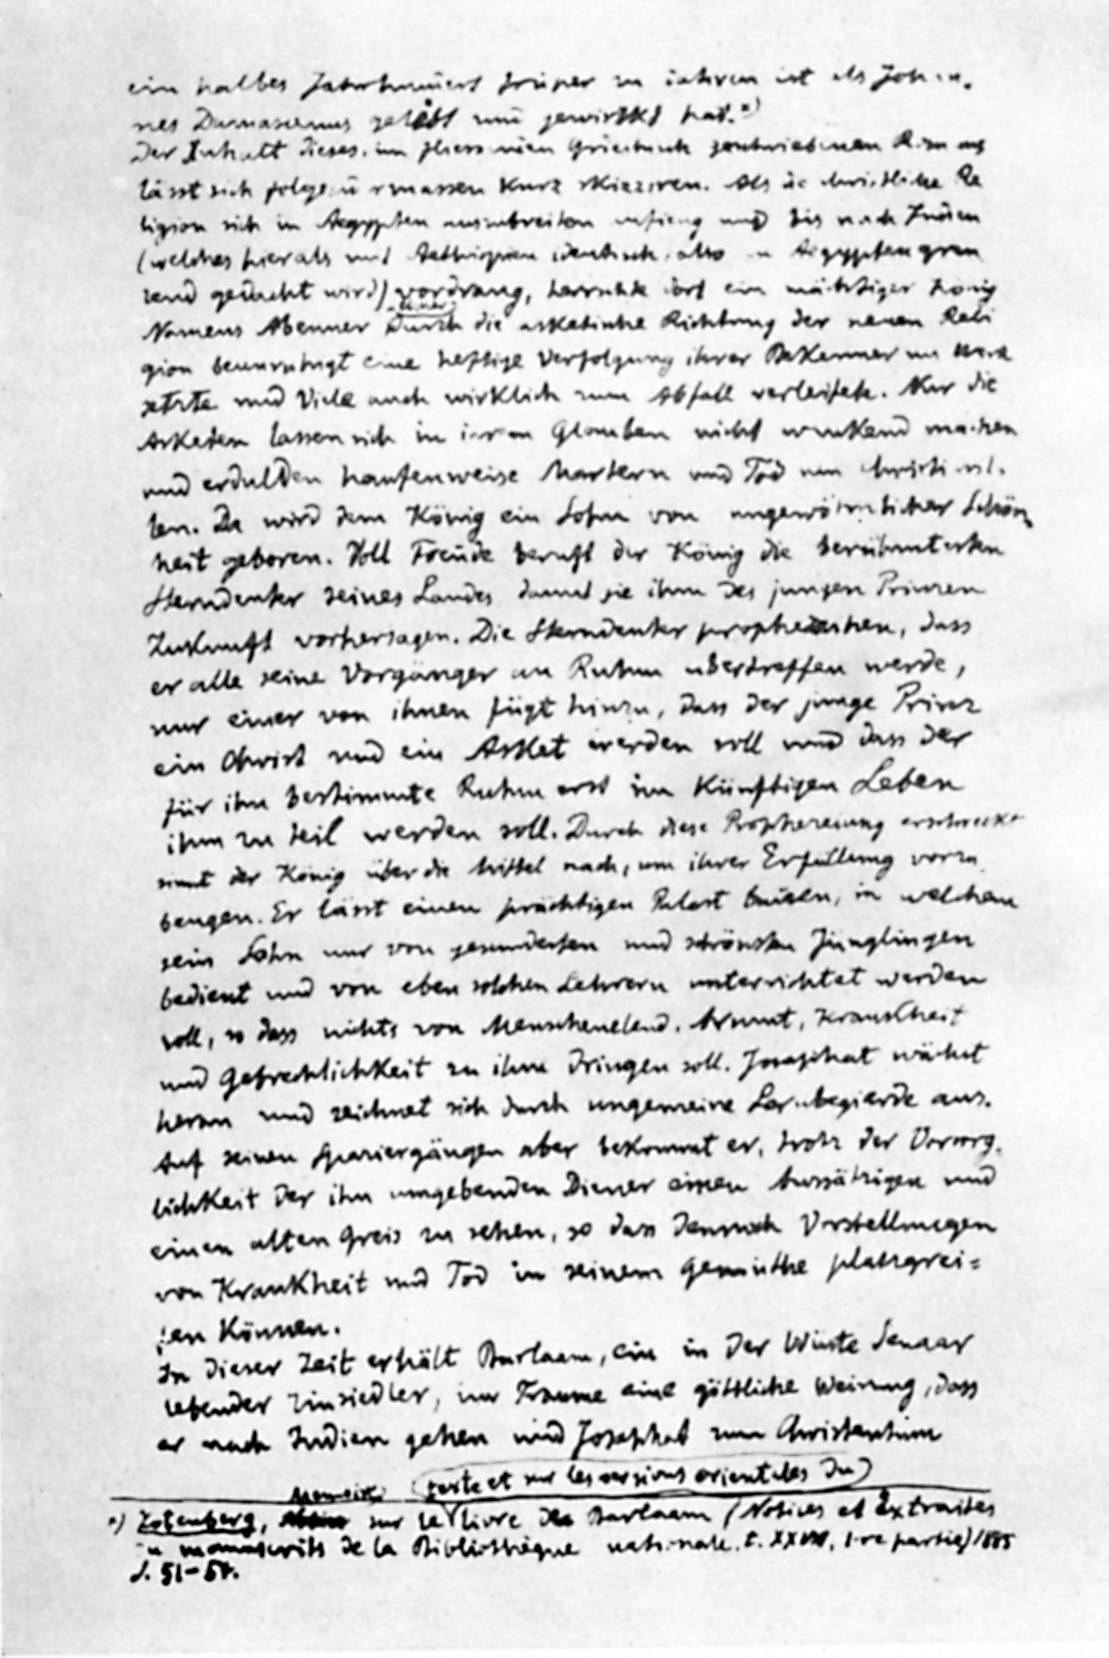 ein halbes Jahrhundert früher zu setzen ist als Johan-
nes Damascenus gelebt und gewirkt hat.*)
Der Inhalt dieses, im fliessenden Griechisch geschriebenen Romans
lässt sich folgendermassen kurz skizziren. Als die christliche Re
ligion sich in Aegypten auszubreiten anfieng und bis nach Indien
(welches hier als mit Aethiopien identisch, also an Aegypten gren
zend gedacht wird) vordrang, herrschte dort ein mächtiger König
Namens Abenner durch die asketische Richtung der neuen Reli
gion beunruhigt eine heftige Verfolgung ihrer Bekenner ins Werk
setzte und Viele auch wirklich zum Abfall verleitete. Nur die
Asketen lassen sich in ihrem Glauben nicht wankend machen
und erdulden haufenweise Martern und Tod um Christi wil-
len. Da wird dem König ein Sohn von ungewöhnlicher Schön
heit geboren. Voll Freude beruft der König die berühmtesten
Sterndeuter seines Landes damit sie ihm des jungen Prinzen
Zukunft vorhersagen. Die Sterndeuter prophezeihen, dass
er alle seine Vorgänger an Ruhm übertreffen werde,
nur einer von ihnen fügt hinzu, dass der junge Prinz
ein Christ und ein Asket werden soll und dass der
für ihn bestimmte Ruhm erst im künftigen Leben
ihm zu teil werden soll. Durch diese Prophezeiung erschreckt
sinnt der König über die Mittel nach, um ihrer Erfüllung vorzu
beugen. Er lässt einen prächtigen Palast bauen, in welchem
sein Sohn nur von gesundesten und schönsten Jünglingen
bedient und von eben solchen Lehrern unterrichtet werden
soll, so dass nichts von Menschenelend, Armut, Krankheit
und Gebrechlichkeit zu ihm dringen soll. Josaphat wächst
heran und zeichnet sich durch ungemeine Lernbegierde aus.
Auf seinen Spaziergängen aber bekommt er, trotz der Vorsorg-
lichkeit der ihn umgebenden Diener einen Aussätzigen und
einen alten Greis zu sehen, so dass dennoch Vorstellungen
von Krankheit und Tod in seinem Gemüthe platzgrei=
fen können.
In dieser Zeit erhält Barlaam, ein in der Wüste Senaar
lebender Einsiedler, im Traume eine göttliche Weisung, dass
er nach Indien gehen und Josaphat zum Christentum
texte et sur les versions orientales du
Memoire
*) Zotenberg, sur le livre de Barlaam (Notices et Extraites
du manuscrits de la Bibliothèque nationale. t. XXVIII, 1-re partie) 1885
S. 51-57.